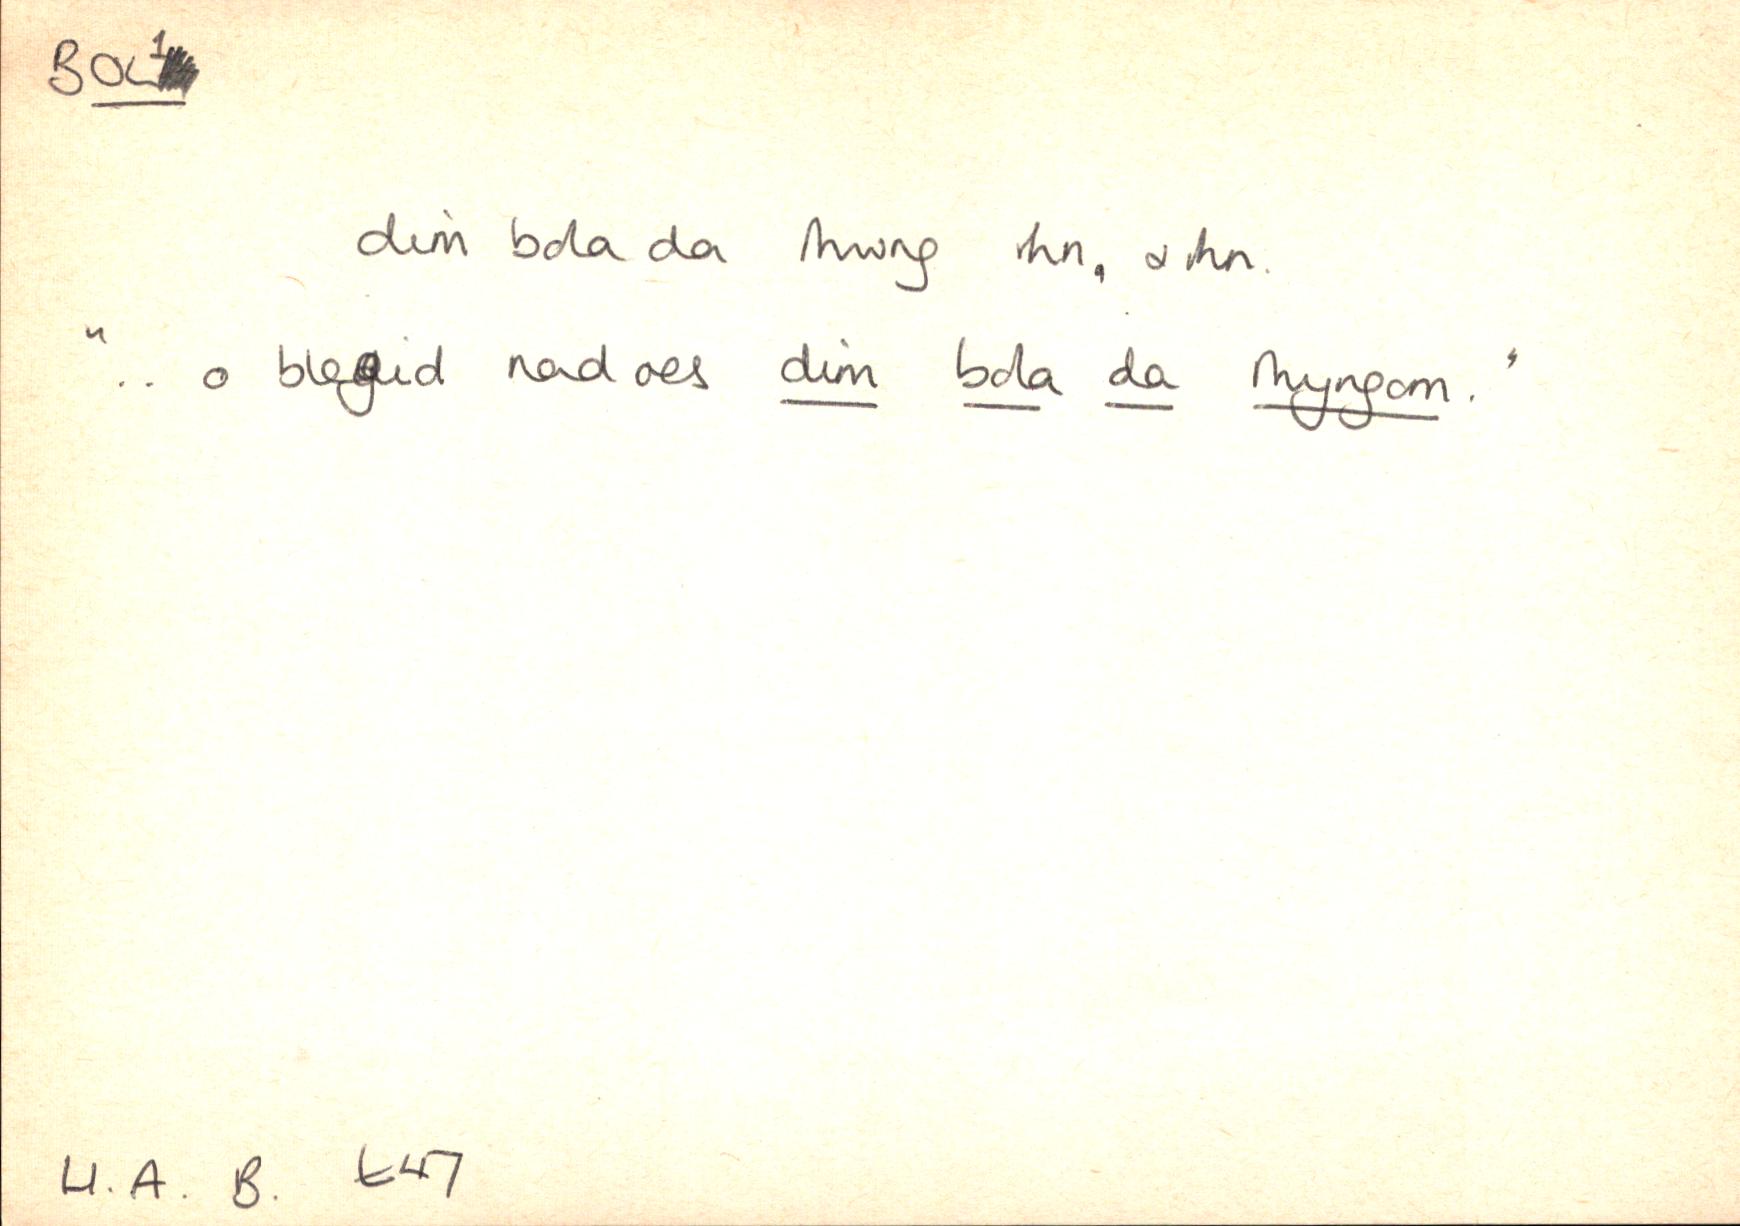 BOL¹
dim bola da rhwng rhn, a rhn.
".. o blegid nad oes dim bola da rhyngom."
Ll. A. B. t47